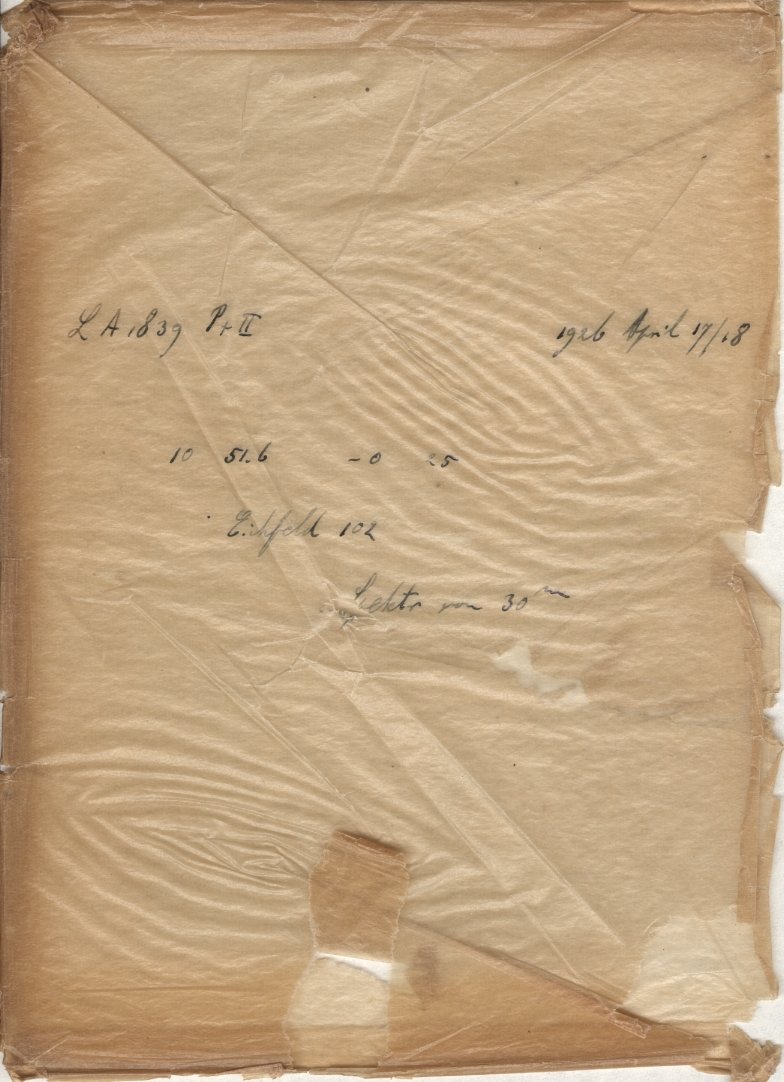 LA 1839 Pt II 1926 April 17/18
10 51.6 -0 25
Eichfeld 102
von 30ᵐ